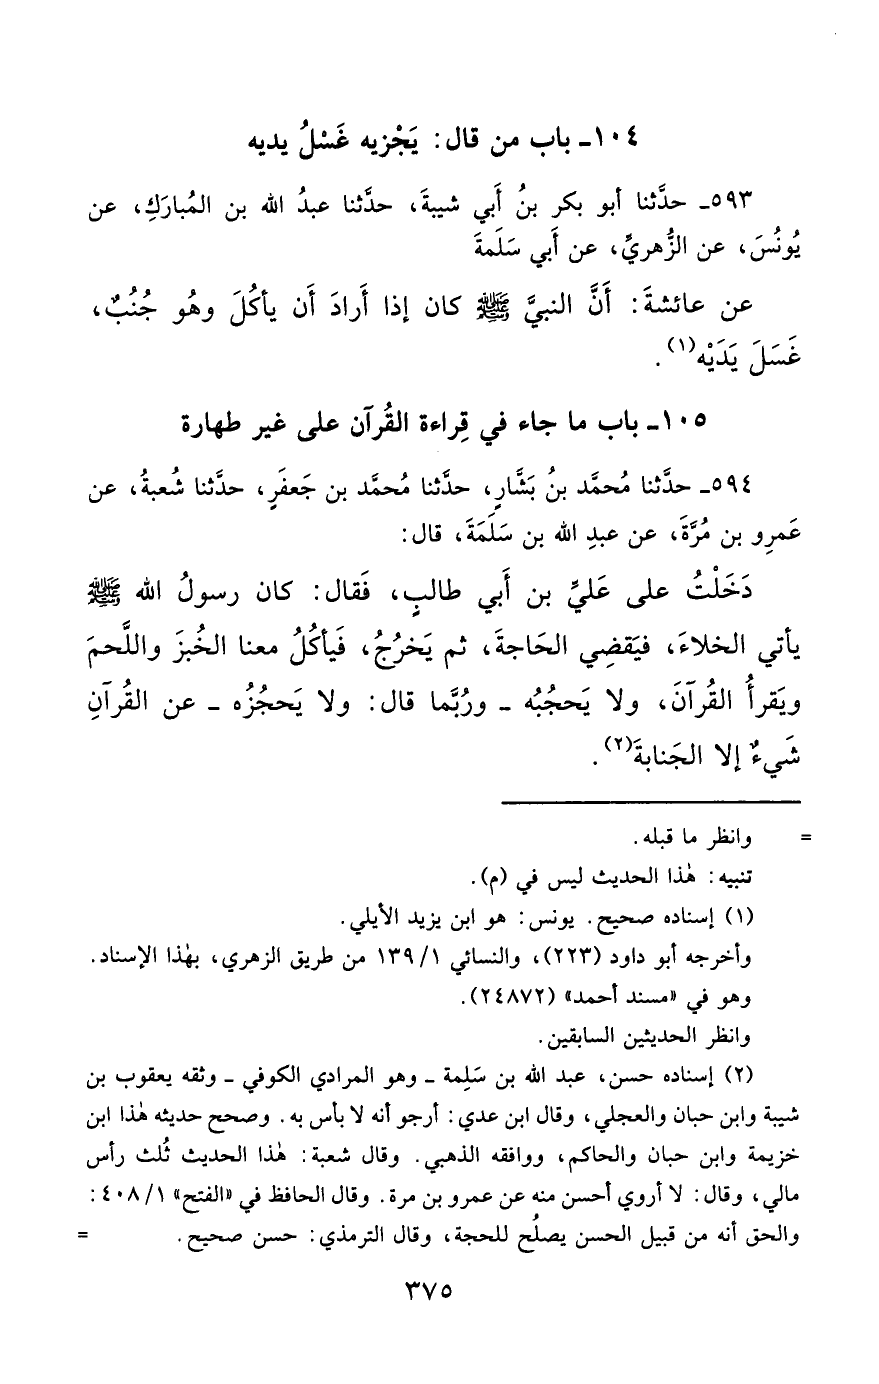 ١٠٤ـ باب من قال: يَجْزيه غَسْلُ يديه
٥٩٣ـ حدَّثنا أبو بكر بنُ أَبي شيبةَ، حدَّثنا عبدُ الله بن المُبارَكِ، عن
يُونُسَ، عن الزُّهريِّ، عن أَبي سَلَمةَ
عن عائشةَ: أَنَّ النبيَّ ﷺ كان إذا أَرادَ أَن يأكُلَ وهُو جُنُبٌ،
غَسَلَ يَدَيْه(١).
١٠٥ـ باب ما جاء في قِراءة القُرآن على غير طهارة
٥٩٤ـ حدَّثنا مُحمَّد بنُ بَشَّارٍ، حدَّثنا مُحمَّد بن جَعفَرٍ، حدَّثنا شُعبةُ، عن
عَمرِو بن مُرَّةَ، عن عبدِ الله بن سَلَمَةَ، قال:
دَخَلْتُ على عَليِّ بن أَبي طالبٍ، فَقال: كان رسولُ الله ﷺ
يأتي الخلاءَ، فيَقضِي الحَاجةَ، ثم يَخرُجُ، فَيأكُلُ معنا الخُبزَ واللَّحمَ
ويَقرأُ القُرآنَ، ولا يَحجُبُه ـ ورُبَّما قال: ولا يَحجُزُه ـ عن القُرآنِ
شَيءٌ إلا الجَنابةَ(٢).
= وانظر ما قبله.
تنبيه: هٰذا الحديث ليس في (م).
(١) إسناده صحيح. يونس: هو ابن يزيد الأيلي.
وأخرجه أبو داود (٢٢٣)، والنسائي ١/ ١٣٩ من طريق الزهري، بهٰذا الإسناد.
وهو في «مسند أحمد» (٢٤٨٧٢).
وانظر الحديثين السابقين.
(٢) إسناده حسن، عبد الله بن سَلِمة ـ وهو المرادي الكوفي ـ وثقه يعقوب بن
شيبة وابن حبان والعجلي، وقال ابن عدي: أرجو أنه لا بأس به. وصحح حديثه هٰذا ابن
خزيمة وابن حبان والحاكم، ووافقه الذهبي. وقال شعبة: هٰذا الحديث ثُلث رأس
مالي، وقال: لا أروي أحسن منه عن عمرو بن مرة. وقال الحافظ في «الفتح» ١/ ٤٠٨:
والحق أنه من قبيل الحسن يصلُح للحجة، وقال الترمذي: حسن صحيح. =
٣٧٥